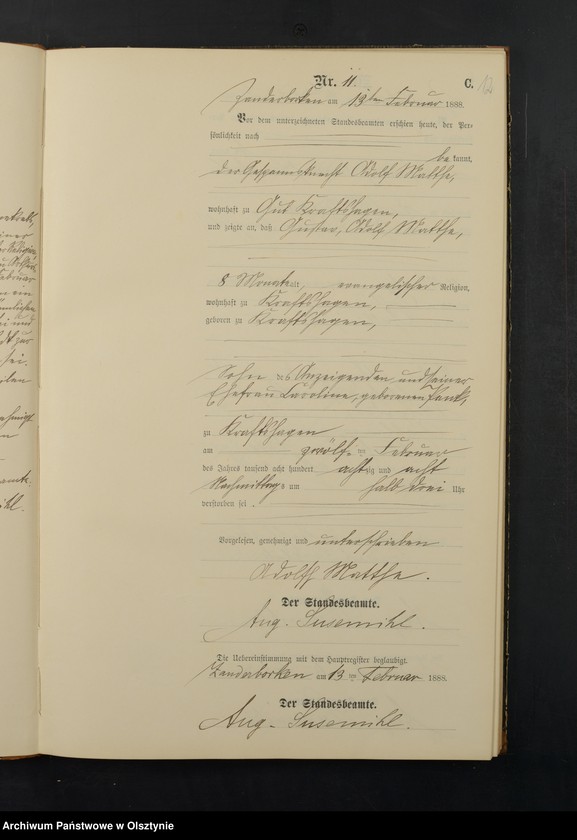 Nr. 11.
C.
12
Zanderborken am 13ten Februar 1888.
Vor dem unterzeichneten Standesbeamten erschien heute, der Per-
sönlichkeit nach
be kannt,
der Gespannknecht Adolf Matthe,
wohnhaft zu Gut Kraftshagen,
und zeigte an, daß Gustav, Adolf Matthe,
8 Monate alt, evangelischer Religion,
wohnhaft zu Kraftshagen,
geboren zu Kraftshagen,
Sohn des Anzeigenden und seiner
Ehefrau Caroline, geborenen
zu Kraftshagen
am zwölften Februar
des Jahres tausend acht hundert achtzig und acht
Nachmittags um halb drei Uhr
verstorben sei.
Vorgelesen, genehmigt und unterschrieben
Adolf Matthe.
Der Standesbeamte.
Aug. Susemihl.
Die Uebereinstimmung mit dem Hauptregister beglaubigt.
Zanderborken am 13ten Februar 1888.
Der Standesbeamte.
Aug. Susemihl.
Archiwum Państwowe w Olsztynie